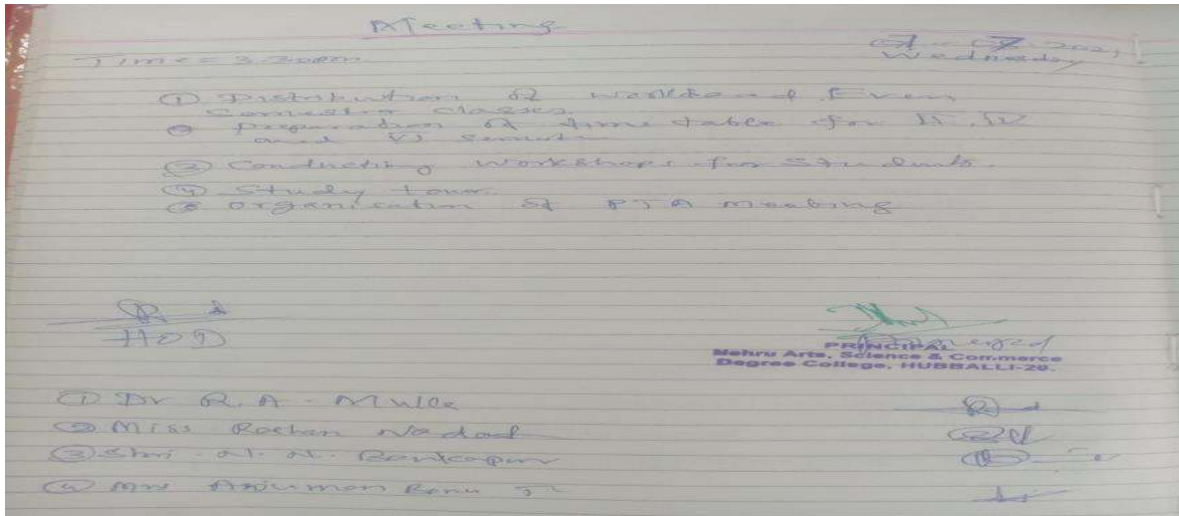 Meeting
Time = 3.30pm
Wednesday
① Distribution of workload Even
Semester classes.
② preparation of time table for II, IV
and VI Semester
③ Conducting Workshops for Students.
④ Study tour.
⑤ Organisation of PTA meeting
HOD
PRINCIPAL
Nehru Arts, Science & Commerce
Degree College, HUBBALLI-20.
① Dr R. A. Mulla
② Miss Roshan Nadaf
③ Shri. N. N.
④ Anjuman Banu